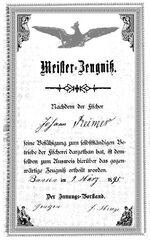 Meister-Zeugniß.
Nachdem der Fischer
Johann Reimer
seine Befähigung zum selbstständigen Be-
triebe der Fischerei dargethan hat, ist dem-
selben zum Ausweis hierüber das gegen-
wärtige Zeugniß ertheilt worden.
Der Innungs-Vorstand.